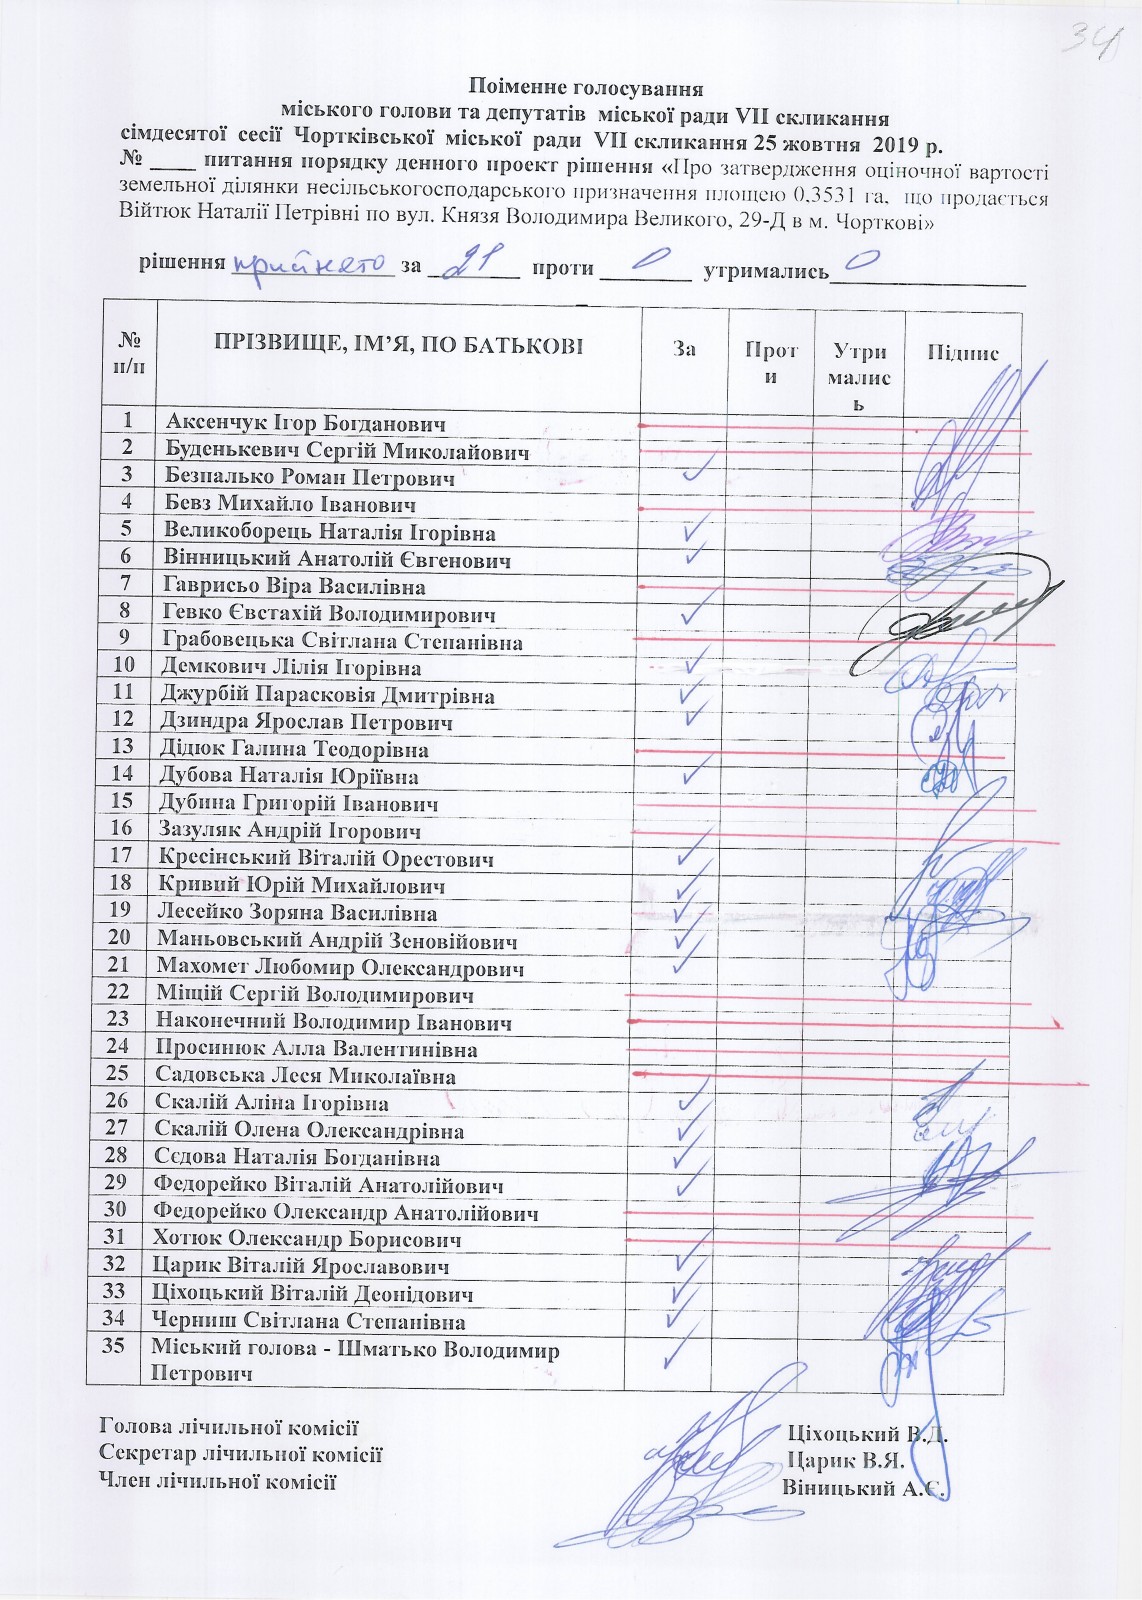 34
Поіменне голосування
міського голови та депутатів міської ради VII скликання
сімдесятої сесії Чортківської міської ради VII скликання 25 жовтня 2019 р.
№ ____ питання порядку денного проект рішення «Про затвердження оціночної вартості
земельної ділянки несільськогосподарського призначення площею 0,3531 га, що продається
Війтюк Наталії Петрівні по вул. Князя Володимира Великого, 29-Д в м. Чорткові»
рішення прийнято за 21 проти 0 утримались 0
№ п/п ПРІЗВИЩЕ, ІМ’Я, ПО БАТЬКОВІ За Проти УтрималисЬ Підпис
1 Аксенчук Ігор Богданович
2 Буденькевич Сергій Миколайович
3 Безпалько Роман Петрович ✓
4 Бевз Михайло Іванович
5 Великоборець Наталія Ігорівна ✓
6 Вінницький Анатолій Євгенович ✓
7 Гаврисьо Віра Василівна
8 Гевко Євстахій Володимирович ✓
9 Грабовецька Світлана Степанівна
10 Демкович Лілія Ігорівна ✓
11 Джурбій Парасковія Дмитрівна ✓
12 Дзиндра Ярослав Петрович ✓
13 Дідюк Галина Теодорівна
14 Дубова Наталія Юріївна ✓
15 Дубина Григорій Іванович
16 Зазуляк Андрій Ігорович
17 Кресінський Віталій Орестович ✓
18 Кривий Юрій Михайлович ✓
19 Лесейко Зоряна Василівна ✓
20 Маньовський Андрій Зеновійович ✓
21 Махомет Любомир Олександрович ✓
22 Міщій Сергій Володимирович
23 Наконечний Володимир Іванович
24 Просинюк Алла Валентинівна
25 Садовська Леся Миколаївна
26 Скалій Аліна Ігорівна ✓
27 Скалій Олена Олександрівна ✓
28 Сєдова Наталія Богданівна ✓
29 Федорейко Віталій Анатолійович ✓
30 Федорейко Олександр Анатолійович
31 Хотюк Олександр Борисович
32 Царик Віталій Ярославович ✓
33 Ціхоцький Віталій Деонідович ✓
34 Черниш Світлана Степанівна ✓
35 Міський голова - Шматько Володимир ✓
Петрович
Голова лічильної комісії Ціхоцький В.Д.
Секретар лічильної комісії Царик В.Я.
Член лічильної комісії Віницький А.Є.